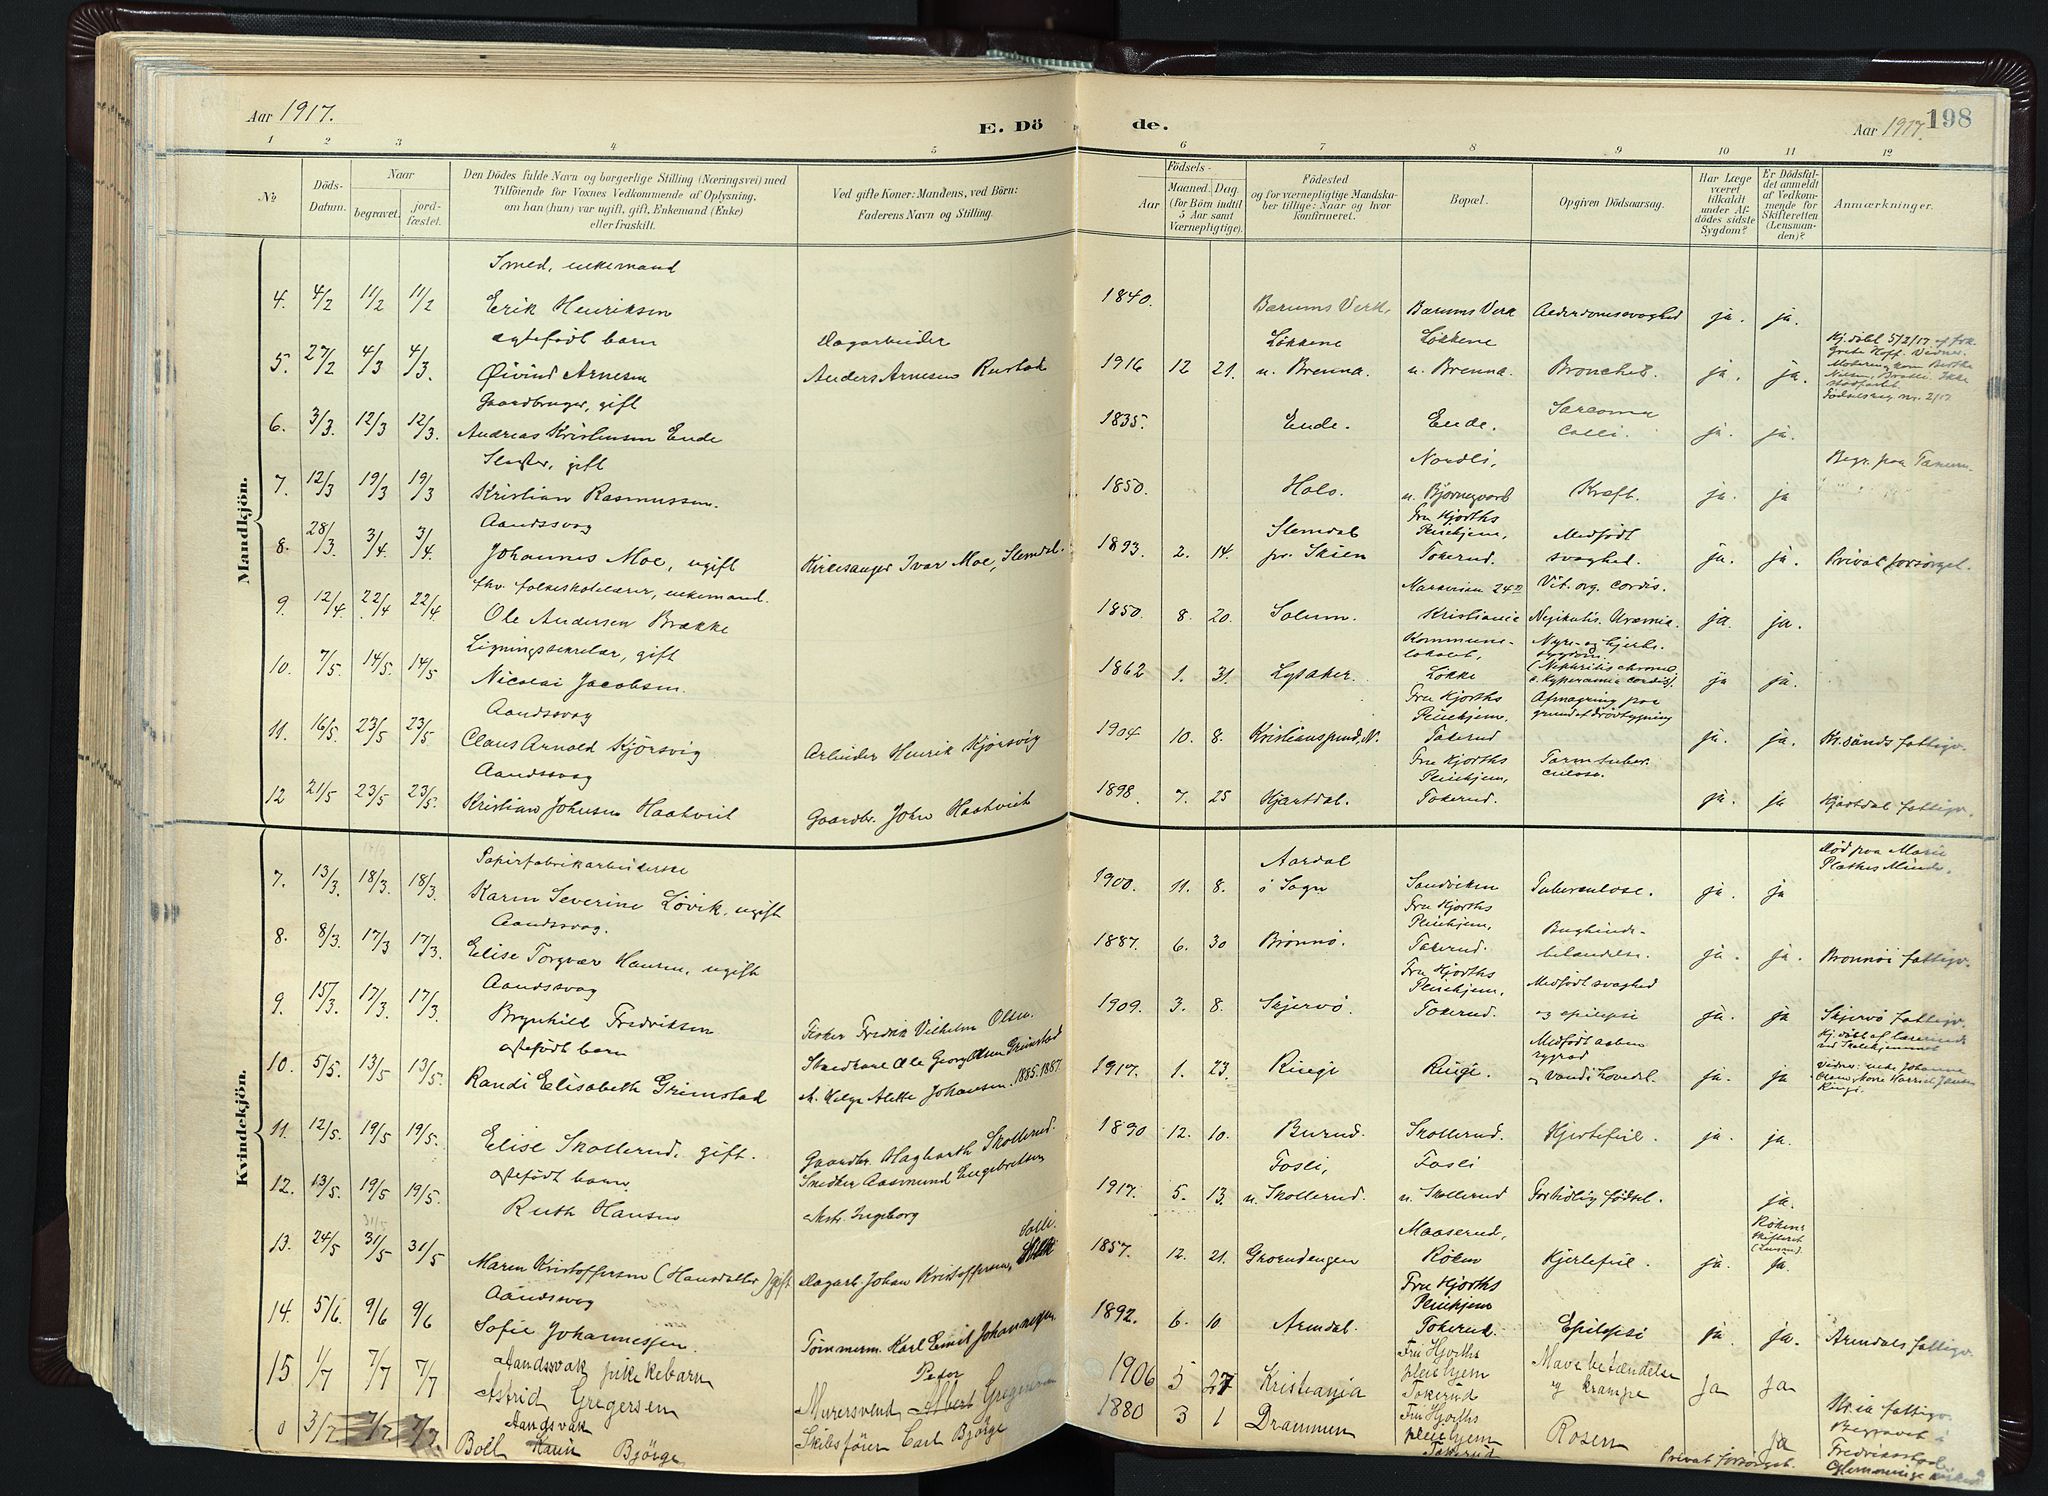 Aar 1917.
E. Dö
de.
Aar 1917.
198
1 2 3 4 5 6 7 8 9 10 11 12
№
Döds-
Datum.
Naar
begravet.
jord-
fæstet.
Den Dödes fulde Navn og borgerlige Stilling (Næringsvei) med
Tilföiende for Voxnes Vedkommende af Oplysning,
om han (hun) var ugift, gift, Enkemand (Enke)
eller fraskilt.
Ved gifte Koner: Mandens, ved Börn:
Faderens Navn og Stilling.
Födsels-
Aar
Maaned.
Dag.
(for Börn indtil
5 Aar samt
Værnepligtige).
Födested
og for værnepligtige Mandska-
ber tillige: Naar og hvor
konfirmeret.
Bopæl.
Opgiven Dödsaarsag.
Har Læge
været
tilkaldt
under Af-
dödes sidste
Sygdom?
Er Dödsfal-
det anmeldt
af Vedkom-
mende for
Skifteretten
(Lensman-
den)?
Anmærkninger.
Mandkjön.
Smed, enkemand
4. 4/2 11/2 11/2 Erik Henriksen 1840. Bærums Verk. Bærums Verk Alderdomssvaghed ja. ja.
ægtefödt barn Dagarbeider Løkkene Løkkene
5. 27/2 4/3 4/3. Øivind Arnesen Anders Arnesen Rustad 1916 12 21. u. Brenna. u. Brenna. Bronchit. ja. ja.
Kj. döbt 5/2/17 af frk.
Grete Hoff. Vidner:
Födselsreg. nr. 2/17
Gaardbruger, gift Sarcoma
6. 3/3. 12/3 12/3. Andreas Kristensen Ende 1835. Ende. Ende. Colli. ja. ja.
gift Nordli, Begr. paa Tanum
7. 12/3 19/3 19/3 Kristian Rasmussen. 1850. Holo. u. Bjørnegaard Kræft. ja. ja
Aandssvag Slemdal Fru Hjorths Pleiehjem, Medfödt
8. 28/3. 3/4 3/4. Johannes Moe, ugift Kirkesanger Ivar Moe, Slemdal. 1893. 2. 14. pr. Skien Tokerud. svaghed. ja. ja. Privat forsørget.
fhv. folkeskolelærer, enkemand. Markveien 24 II Vit. org. cordis.
9. 12/4 22/4 22/4. Ole Andersen Brække 1850. 8. 20. Solum. Kristiania Uræmia. ja ja.
Ligningssekretær, gift Kommune- lokalet, Nyre- og hjerte- sygdom.
10. 7/5. 14/5 14/5 Nicolai Jacobsen. 1862 1. 31. Lysaker. Løkke (Nephritis chronic. ja ja.
Aandssvag Fru Hjorths Pleiehjem, Afmagring paa
11. 16/5 23/5 23/5. Claus Arnold Kjørsvig Arbeider Henrik Kjørsvig 1904 10. 8. Kristianssund, N. Tokerud grund af drövtygning ja. ja. Kr.sunds fattigv.
Aandssvag Fru Hjorths Pleiehjem, Tarmtuber- culose.
12 21/5 23/5 23/5. Kristian Johnsen Haatveit Gaardbr. John Haatveit 1898. 7. 25 Hjartdal. Tokerud. ja. ja Hjartdal fattigv.
Kvindekjön.
Papirfabrikarbeiderske Aardal Død paa Marie
7. 13/3. 18/3. 18/3. Karen Severine Løvik, ugift 1900. 11. 8. i Sogn Sandviken Tuberculose. ja ja Plathes Minde.
Aandssvag. Fru Hjorths Pleiehjem, Bughinde-
8. 8/3. 17/3 17/3. Elise Torgvær Hansen, ugift 1887. 6. 30 Brønnø. Tokerud. betændelse. ja. ja. Brønnøi fattigv.
Aandssvag Fru Hjorths Pleiehjem, Medfödt svaghed
9. 15/3. 17/3. 17/3. Brynhild Fredriksen Fisker Fredrik Vilhelm Olsen. 1909. 3. 8. Skjervø. Tokerud. og epilepsi ja. ja Skjervø fattigv.
ægtefödt barn Smedsvend Ole Georg Olsen Grimstad Medfödt aaben rygrad
10. 5/5. 13/5 13/5. Randi Elisabeth Grimstad M. Helga Alette Johansen. 1885. 1887. 1917. 1. 23. Ringi Ringi. og vand i hovedet. ja. ja
11. 12/5. 19/5 19/5. Elise Skollerud, gift. Gaardbr. Hagbarth Skollerud. 1890 12. 10. Burud. Skollerud. Hjertefeil. ja. ja.
ægtefödt barn Snedker Aasmund Engebretsen Fosli, Fosli
12. 13/5. 19/5 19/5. Ruth Hansen Mstr. Ingeborg 1917. 5. 13. u. Skollerud. u. Skollerud Fortidlig födsel. ja.
31/5 Solli. Maaserud, Røken
13. 24/5 31/5 31/5. Maren Kristoffersen (Hansdatter) gift. Dagarb. Johan Kristoffersen, 1857. 12. 21. Groendengen Røken Hjertefeil. ja. ja.
Aandssvag Fru Hjorths Pleiehjem
14. 5/6. 9/6 9/6 Sofie Johannessen. Tømmerm. Karl Emil Johannessen. 1892. 6. 10 Arendal. Tokerud. Epilepsi ja ja. Arendals fattigv.
Aandssvak pikkebarn Peder Fru Hjorths pleiehjem Mavebetændelse
15 1/7 7/7 7/7 Astrid Gregersen Murersvend Albert Gregersen 1906 5 27 Kristiania Tokerud og krampe ja ja Kr.ia fattigv.
Aandsvak Fru Hjorths pleiehjem Begravet i
0 3/7 7/7 7/7. Botl Karin Bjørge Skibsfører Carl Bjørge 1880 3 1 Drammen Tokerud Rosen ja Fredriksstad
Privat forsørget.